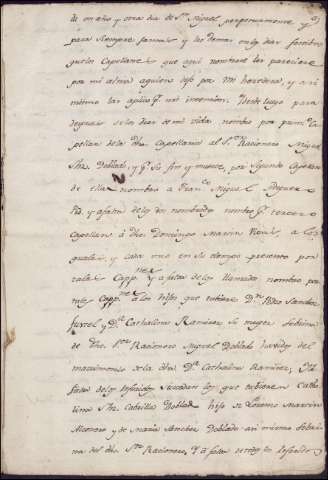 de un año y otra dia de Sn. Miguel perpetuamente y
para siempre jamas y las demas en los dias festibos
que los Capellanes que aqui nombrare les pareciere
por mi alma a quien dejo por mi heredera, y asi
mismo las aplico pr. mi intencion. Desde luego para
despues de los dias de mi vida nombro por primer Ca
pellan de la dha. Capellania al Sr. Racionero Miguel
Shz. Doblado, y pr. su fin y muerte, por segundo Capellan
de ella nombro a Franco. Miguel
y a falta de los dos nombrados nombro pr. tercero
Capellan a Dho. Domingo Martin Ruiz, a los
quales, y cada uno en su tiempo presento por
tales Cappnes. y a falta de los llamados nombro por
tales Cappnes. a los hijos que tubiere Dn. Pedro Sanchez
y Da. Cathalina Ramirez su muger sobrina
de dho. Sor. Racionero Miguel Doblado havidos del
matrimonio de la dha. Da. Cathalina Ramirez, y a
falta de los los que tubiere Catha
lina Shz. Cabrilla Doblado hija de Lorenzo Martin
y de Maria Sanchez Doblado asi mismo sobri
na del dho. Sor. Racionero, y a falta de